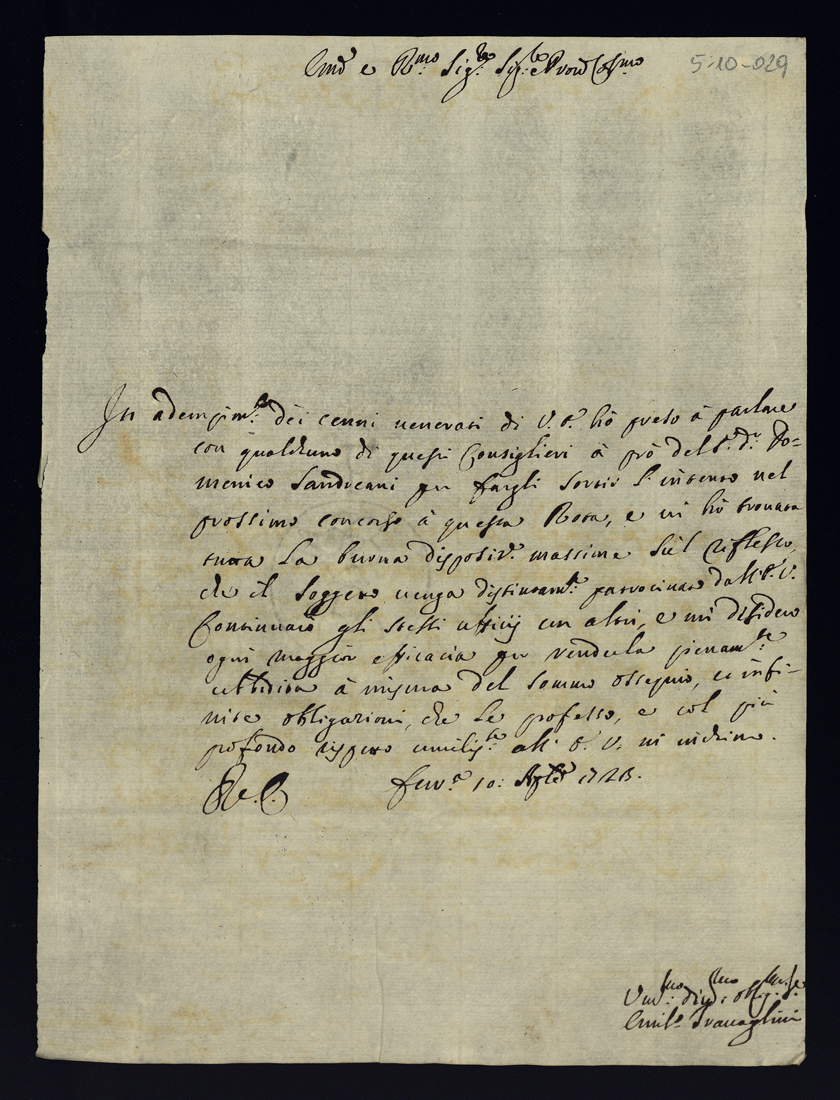 Emo e Rmo Sigre Sigre e Prone Colmo
5-10-029
In adempimto dei cenni venerati di V. E. hò preso à parlare
con qualchuno di questi Consiglieri à prò del S.r D.r Do=
menico Sandreani per fargli sortir l'intento nel
prossimo concorso à questa Rota, e vi hò trovata
tutta la buona disposiz.e massime sul riflesso,
che il soggetto venga distintamte patrocinato dall'E. V.
Continuarò gli stessi ufficij con altri, e mi desidero
ogni maggior efficacia per renderla pienamte
ubbidita à misura del sommo ossequio, et infi=
nite obligazioni, che le professo, e col più
profondo rispetto umilissmte all'E. V. m'inchino.
Ferra 10: 1723.
Umo Divmo Obligmo Sre